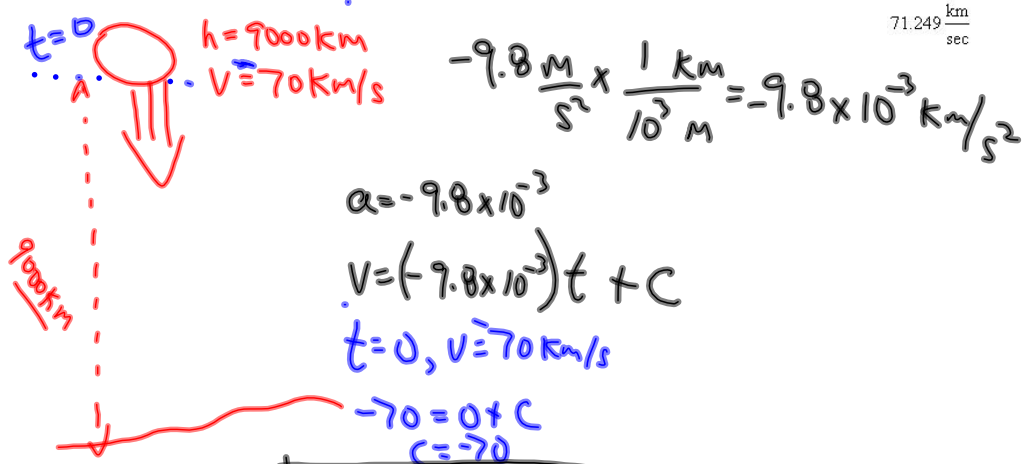 t=0
h=9000km
v=-70km/s
71.249 km/sec
-9.8 m/s² x 1 km/10³ m = -9.8x10⁻³ km/s²
a=-9.8x10⁻³
9000km
v=(-9.8x10⁻³)t + C
t=0, v=-70km/s
-70=0+C
C=-70